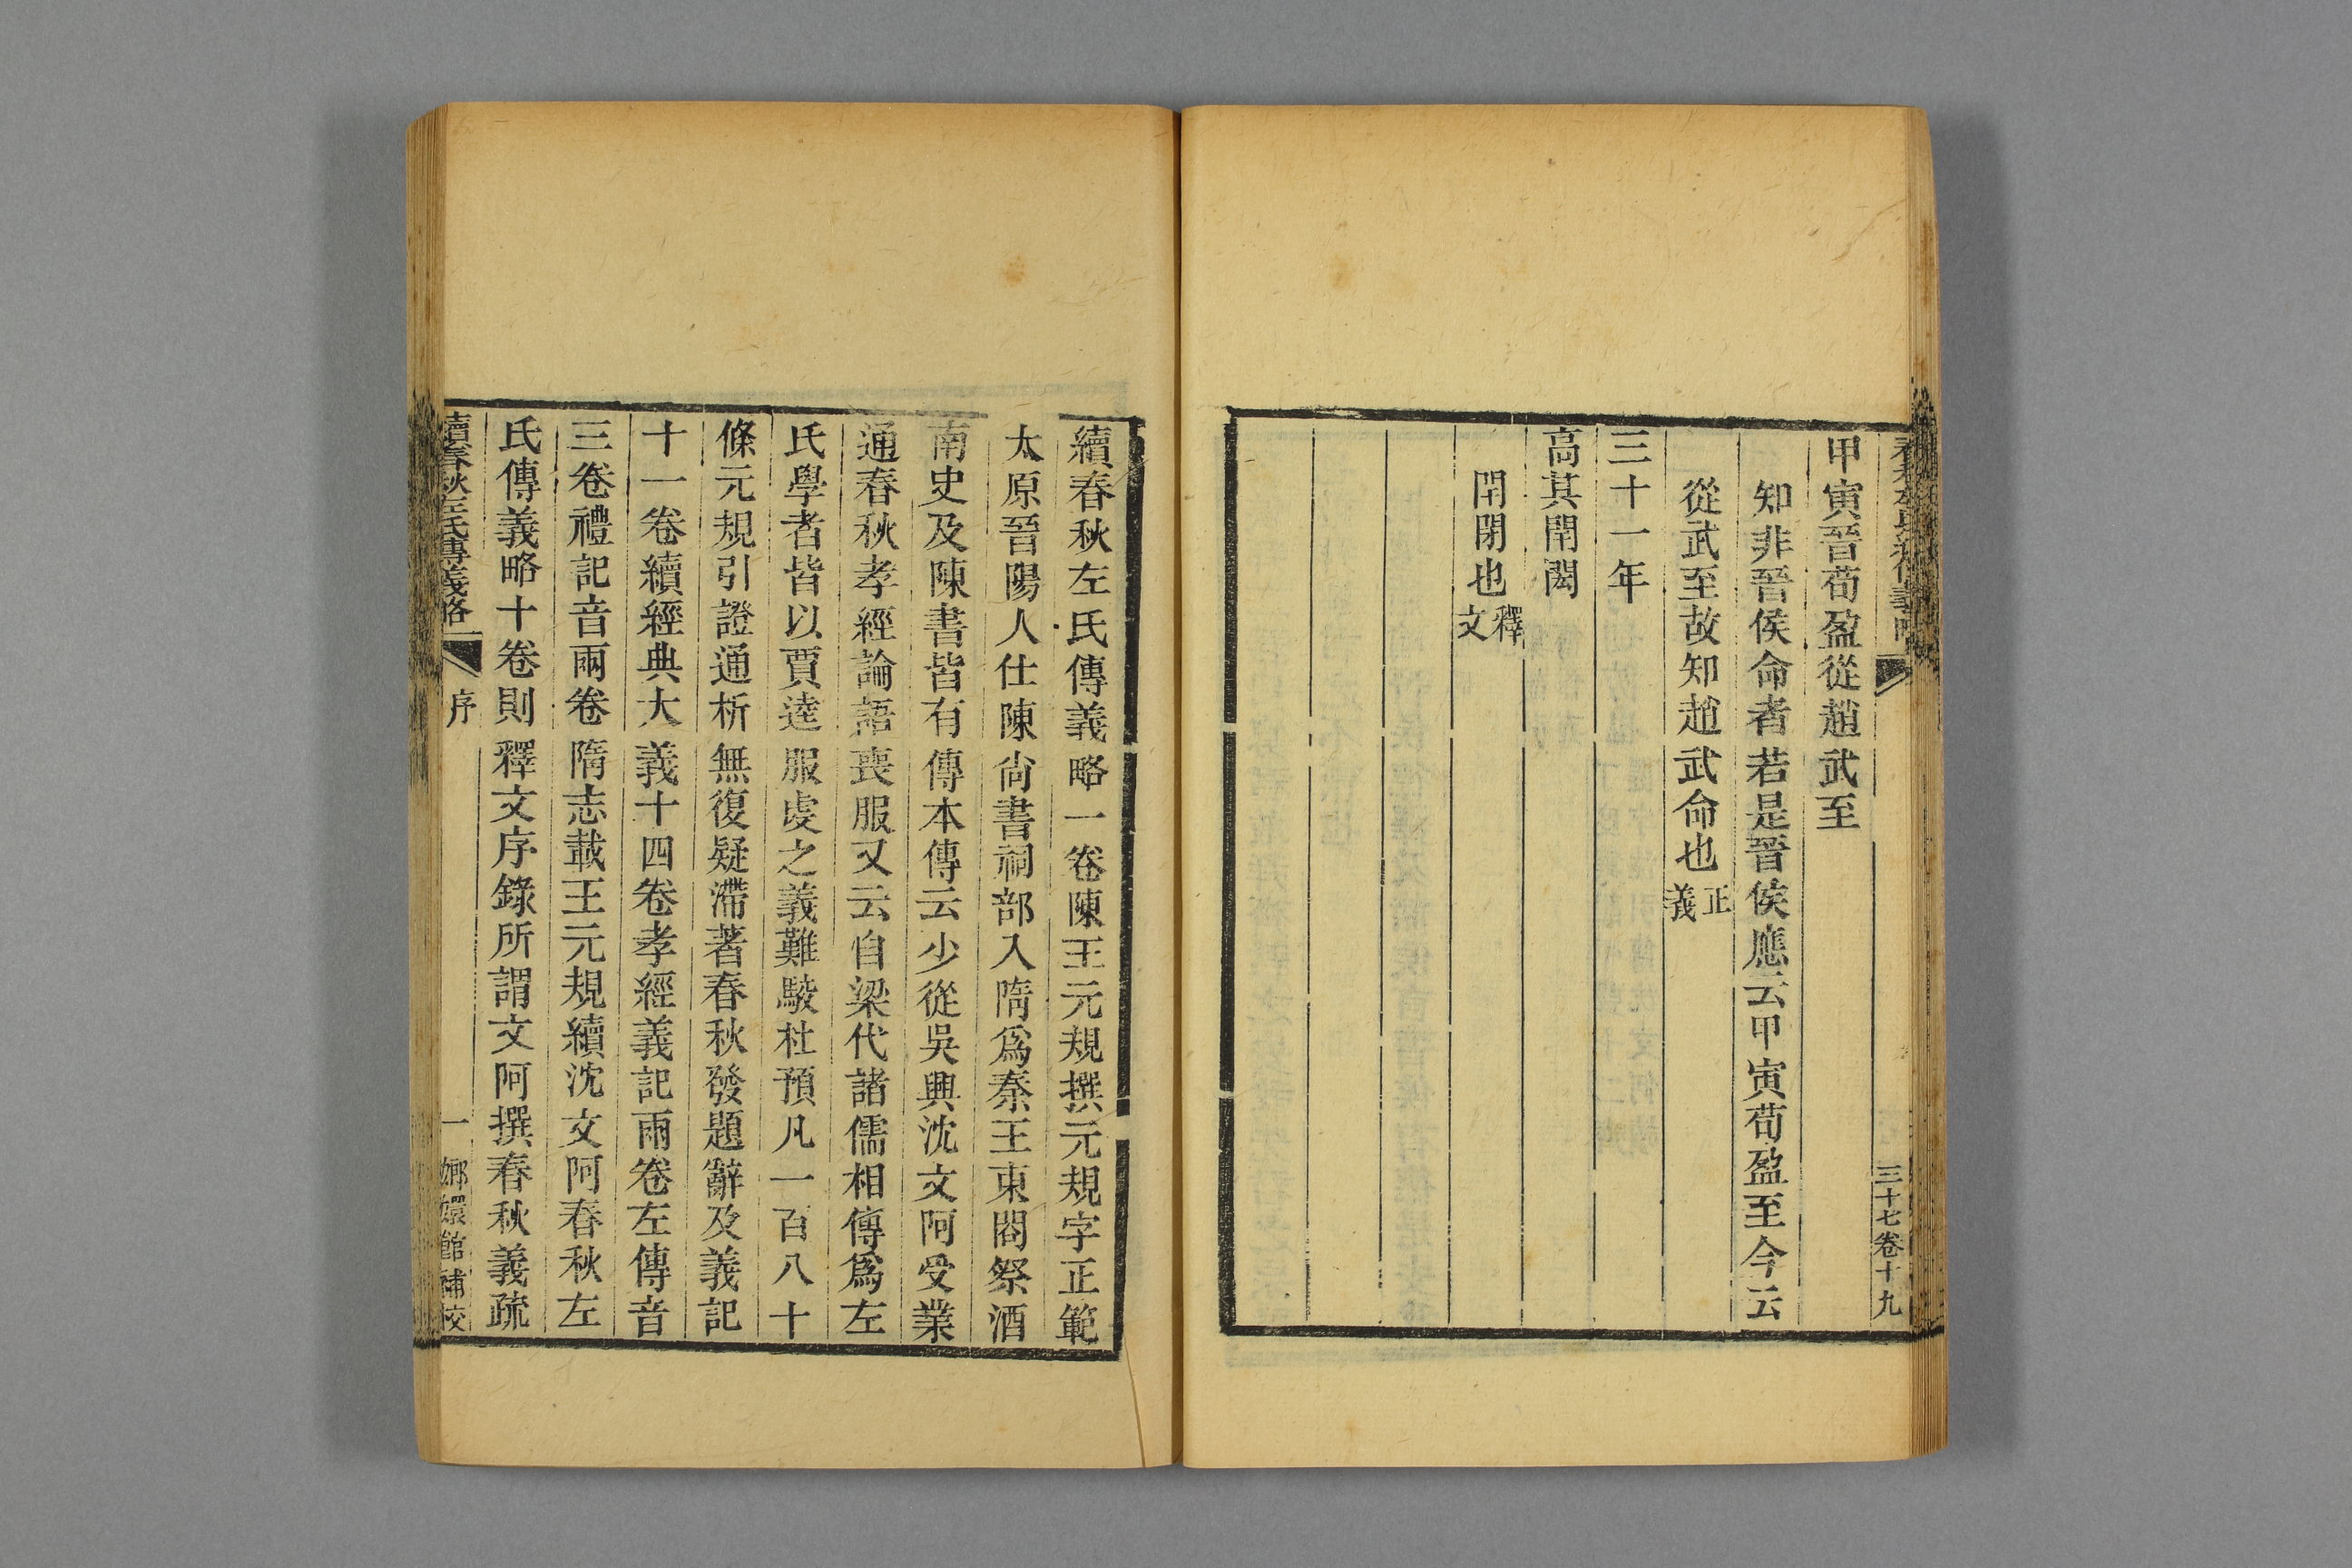 甲寅晉荀盈從趙武至
知非晉侯命者若是晉侯應云甲寅荀盈至今云
從武至故知趙武命也正義
三十一年
高其閈閎
閈閉也釋文
三十七卷十九
續春秋左氏傳義略一卷陳王元規撰元規字正範
太原晉陽人仕陳尙書祠部入隋爲秦王東閤祭酒
南史及陳書皆有傳本傳云少從吳興沈文阿受業
通春秋孝經論語喪服又云自梁代諸儒相傳爲左
氏學者皆以賈逵服虔之義難駮杜預凡一百八十
條元規引證通析無復疑滯著春秋發題辭及義記
十一卷續經典大義十四卷孝經義記兩卷左傳音
三卷禮記音兩卷隋志載王元規續沈文阿春秋左
氏傳義略十卷則釋文序錄所謂文阿撰春秋義疏
續春秋左氏傳義略 序 一 嫏嬛館補校